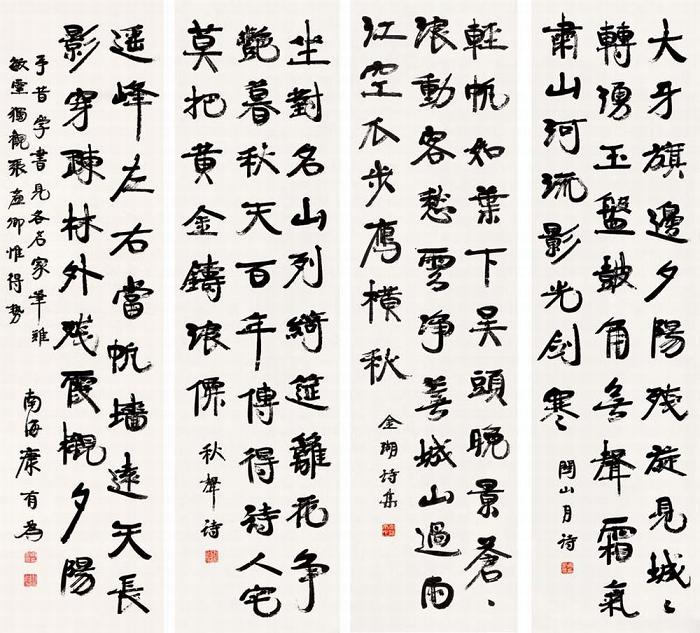 大牙旗邊夕陽殘旋見城〻
轉湧玉盤皷角無聲霜氣
肅山河流影光劍寒
關山月诗
輕帆如葉下吴頭晚景蒼〻
浪動客愁雲净善城山過雨
江空木步鷹橫秋
金瑚诗集
坐對名山列綺筵離花争
艷暮秋天百年傳得诗人宅
莫把黄金鑄浪僊
秋聲诗
遥峰左右當帆墙遠天長
影穿疎林外残霞襯夕陽
予昔學書見各名家筆雖
敏重獨觀張孟卿惟得势
南海康有為